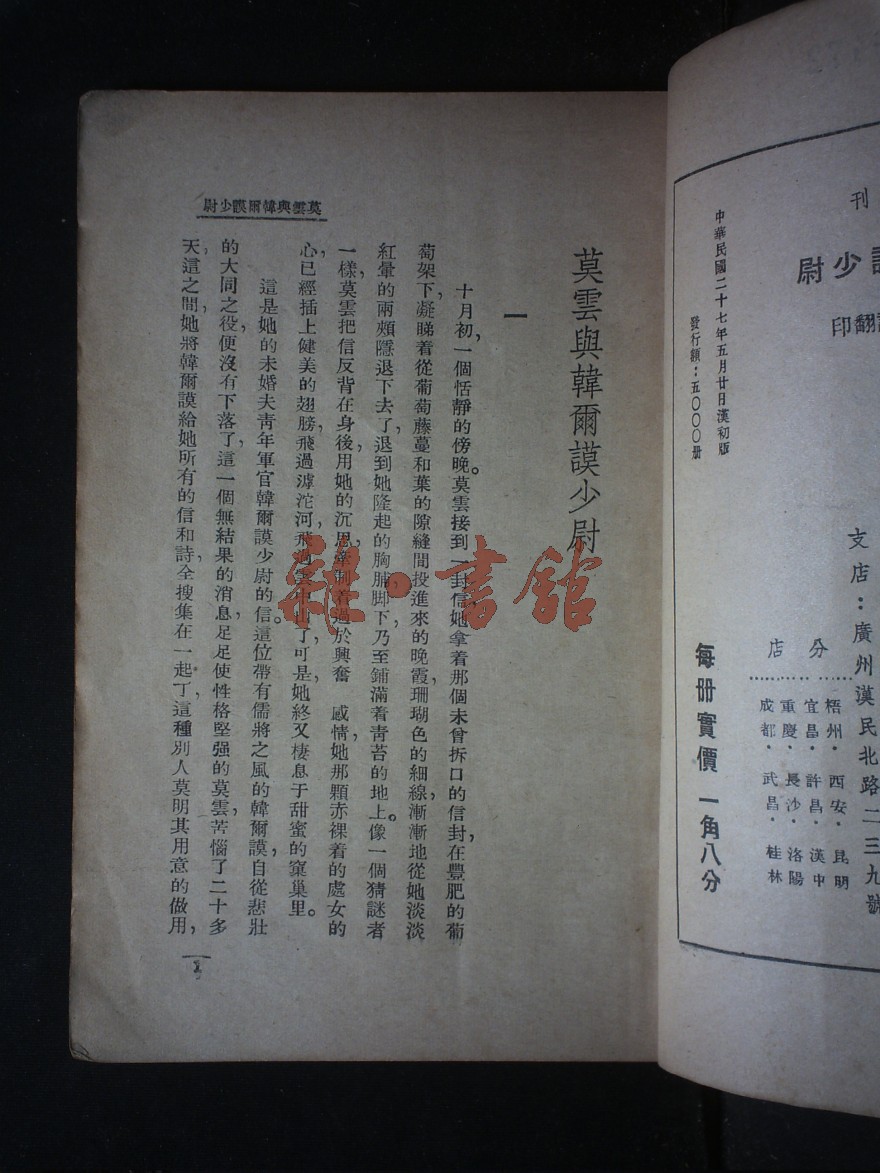 刊
少尉
翻印
中華民國二十七年五月廿日漢初版
發行額：五〇〇〇册
支店：廣州漢民北路二三九號
分店
梧州·西安·昆明
宜昌·許昌·漢中
重慶·長沙·洛陽
成都·武昌·桂林
每册實價一角八分
莫雲與韓爾謨少尉
一
十月初，一個恬靜的傍晚。莫雲接到一封信，她拿着那個未曾拆口的信封，在豐肥的葡
萄架下，凝睇着從葡萄藤蔓和葉的隙縫間投進來的晚霞，珊瑚色的細線，漸漸地從她淡淡
紅暈的兩頰隱退下去了，退到她隆起的胸脯脚下，乃至鋪滿着靑苔的地上。像一個猜謎者
一樣，莫雲把信反背在身後，用她的沉思牽制着過於興奮 感情，她那顆赤裸着的處女的
心，已經插上健美的翅膀，飛過滹沱河，飛過雲中山了，可是，她終又棲息于甜蜜的窠巢里。
這是她的未婚夫靑年軍官韓爾謨少尉的信。這位帶有儒將之風的韓爾謨，自從悲壯
的大同之役，便沒有下落了，這一個無結果的消息，足足使性格堅强的莫雲，苦惱了二十多
天，這之間，她將韓爾謨給她所有的信和詩，全搜集在一起了，這種別人莫明其用意的做用，
莫雲與韓爾謨少尉
1
雜·書館